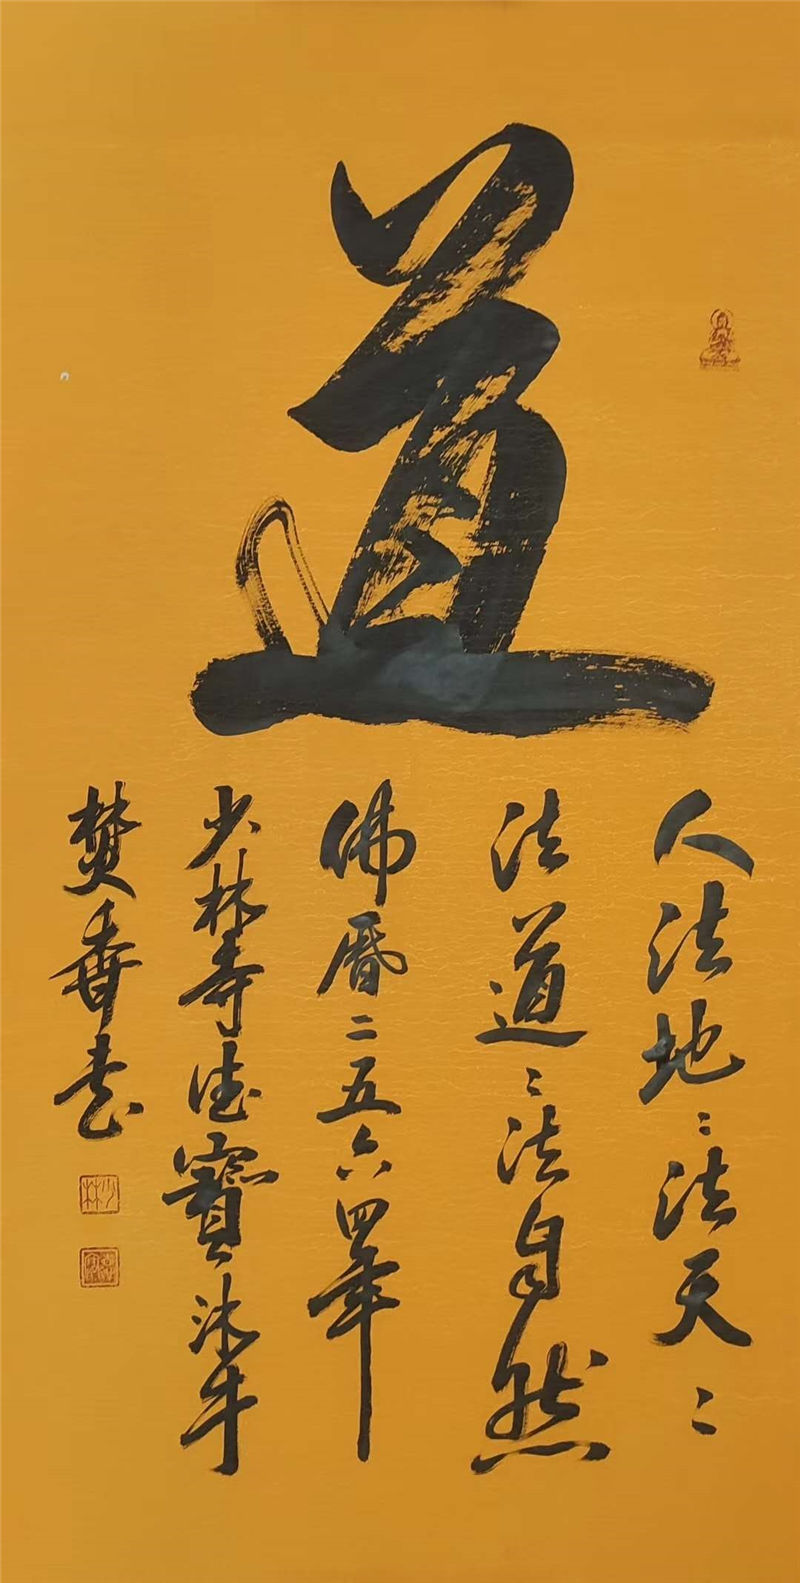 道
人法地〻法天〻
法道〻法自然
佛曆二五六四年
少林寺德寶沐手
焚香書
少林